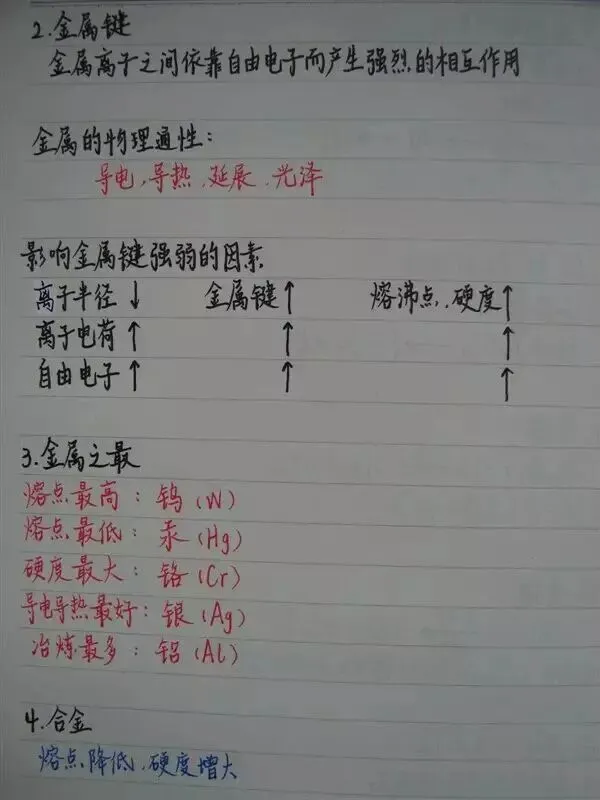 2.金属键
金属离子之间依靠自由电子而产生强烈的相互作用
金属的物理通性:
导电,导热、延展、光泽
影响金属键强弱的因素
离子半径↓ 金属键↑ 熔沸点、硬度↑
离子电荷↑ ↑ ↑
自由电子↑ ↑ ↑
3.金属之最
熔点最高:钨(W)
熔点最低:汞(Hg)
硬度最大:铬(Cr)
导电导热最好:银(Ag)
冶炼最多:铝(Al)
4.合金
熔点降低、硬度增大